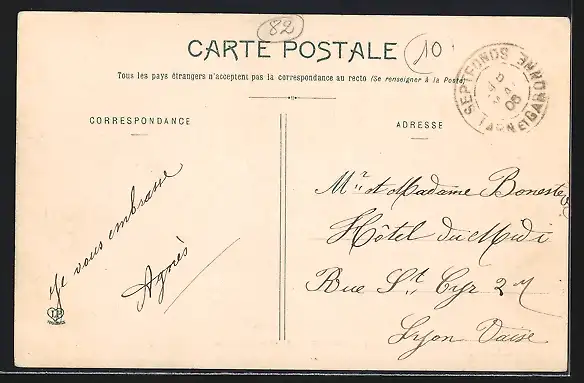 82
CARTE POSTALE
10
Tous les pays étrangers n'acceptent pas la correspondance au recto (Se renseigner à la Poste)
SEPTFONDS
TARN ET GARONNE
08
CORRESPONDANCE
ADRESSE
Je vous embrasse
Agnès
Mr et Madame
Hôtel du Midi
Rue St Cyr 2
Lyon Vaise